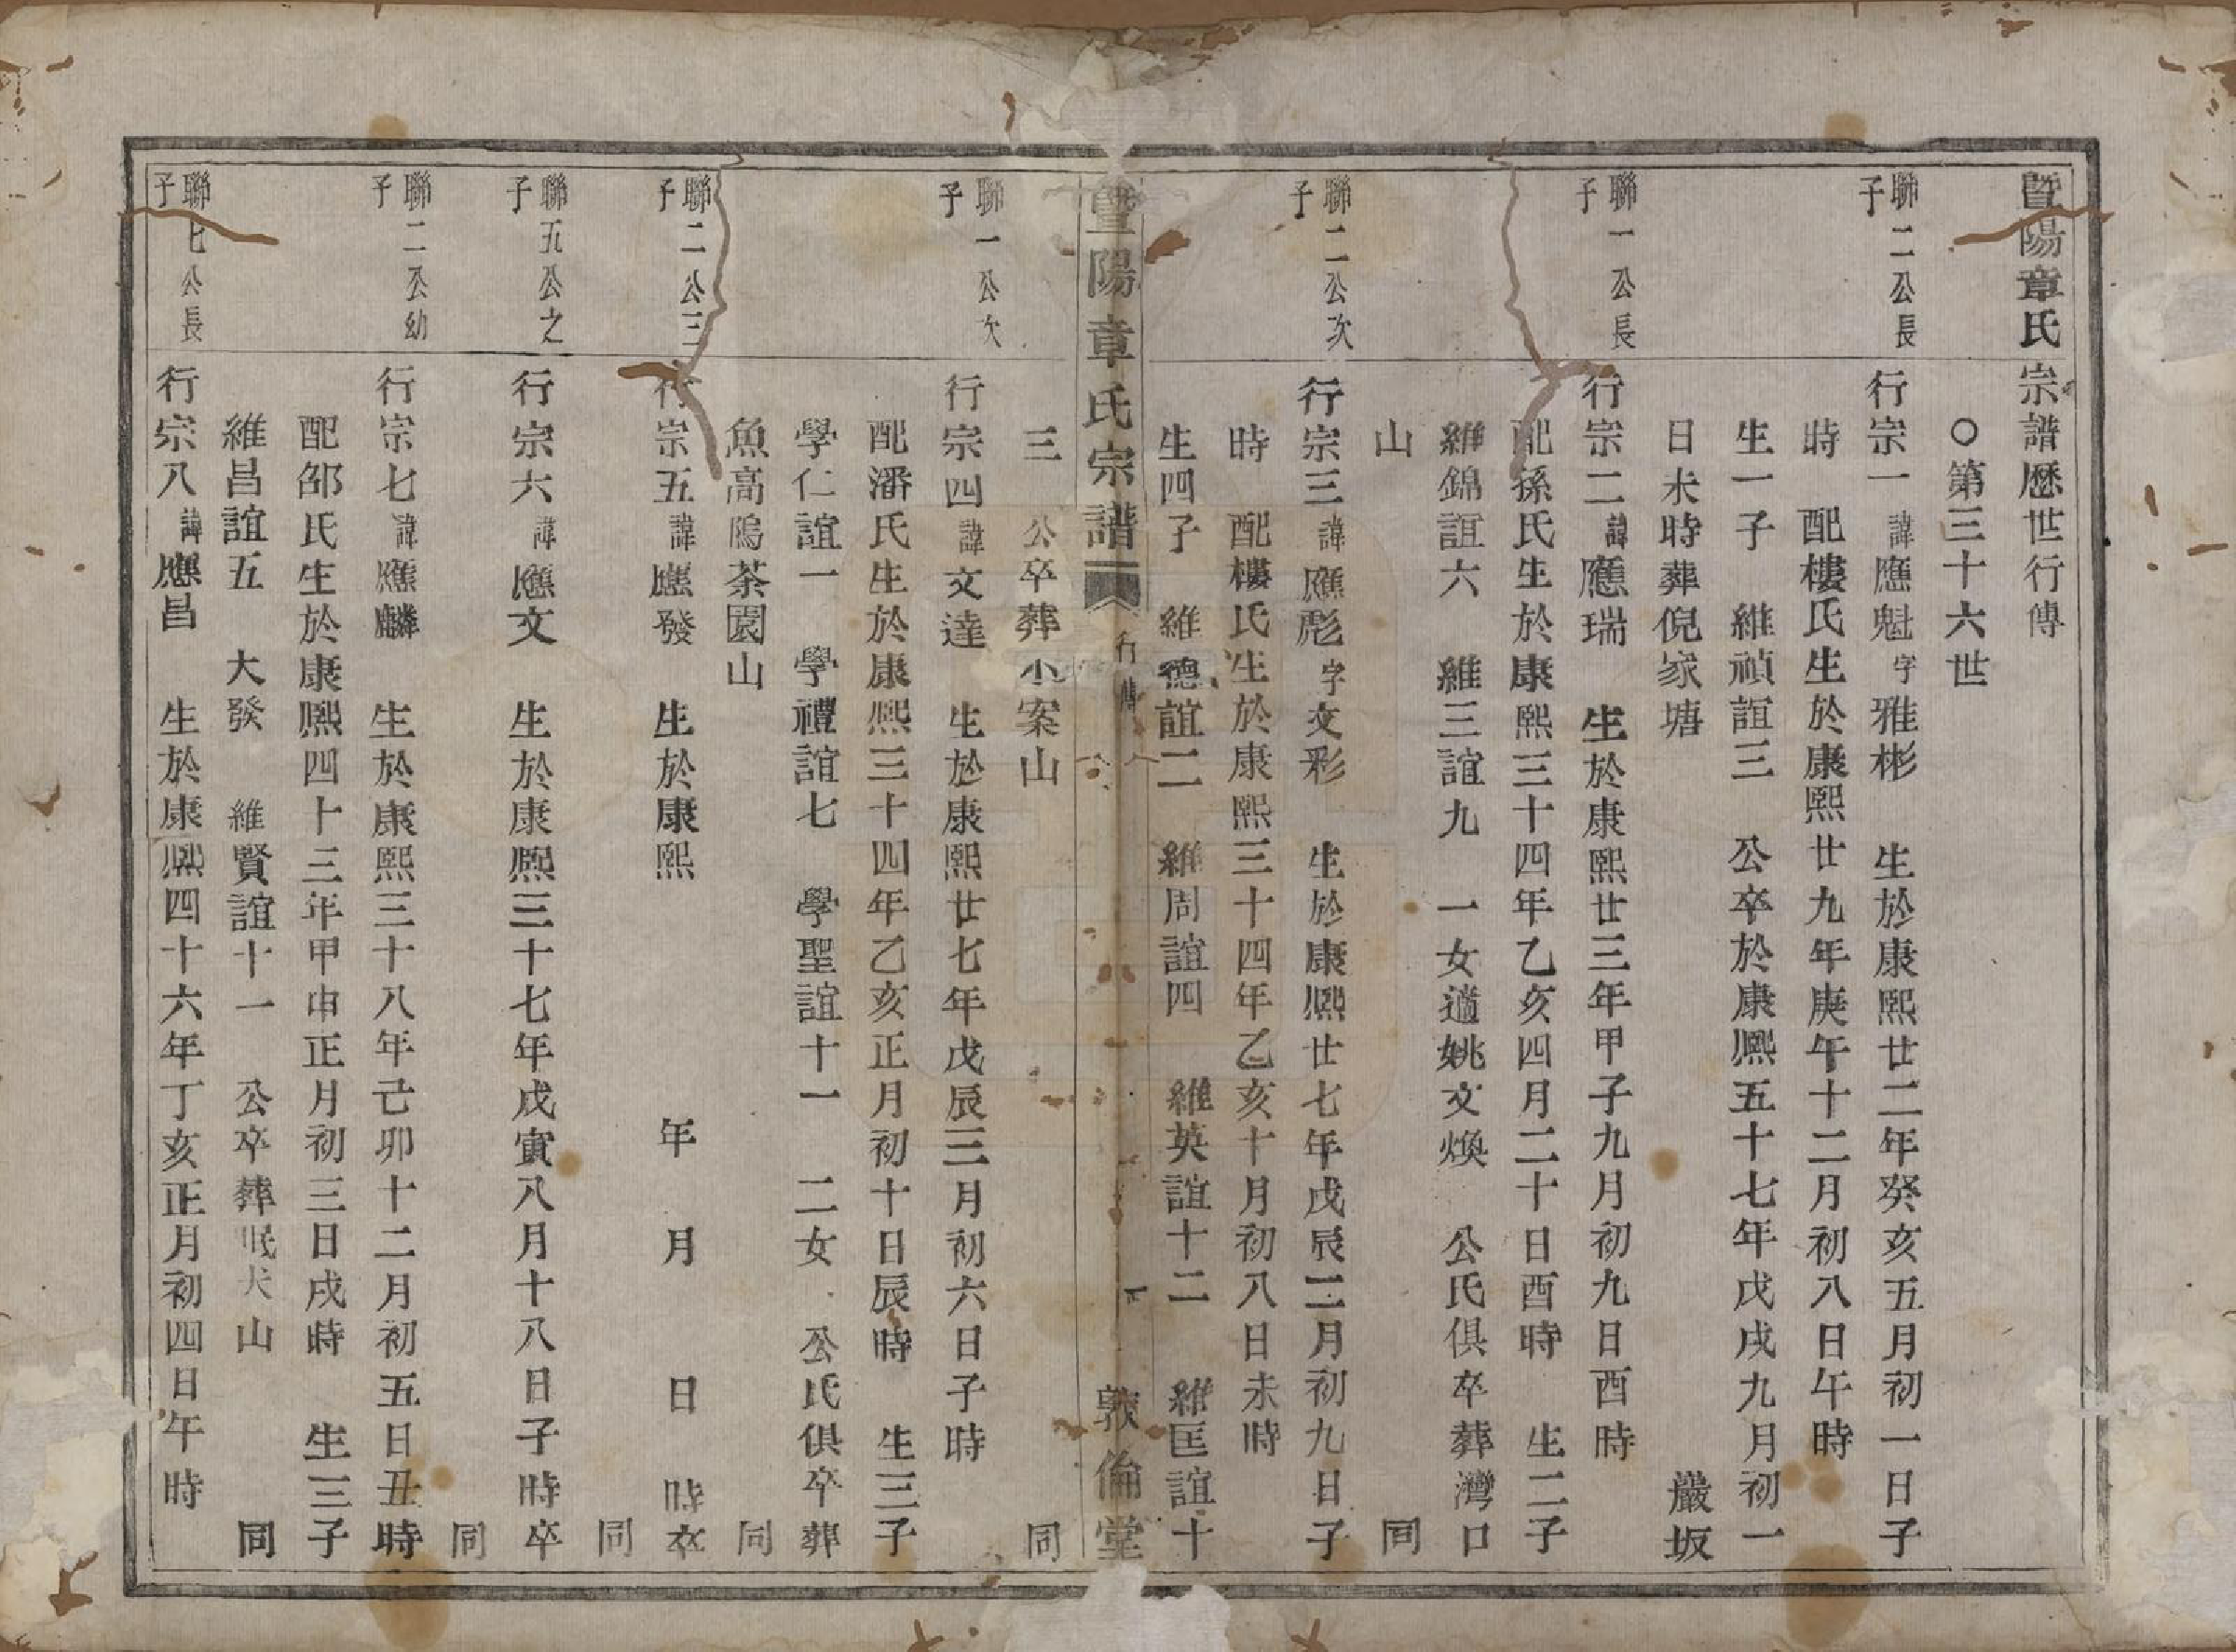 暨陽章氏宗譜歷世行傳
〇第三十六世
聯二公長子
行宗一諱應魁字雅彬 生於康熙廿二年癸亥五月初一日子
時 配樓氏生於康熙廿九年庚午十二月初八日午時
生一子 維禎誼三 公卒於康熙五十七年戊戌九月初一
日未時葬倪家塘 嚴坂
聯一公長子
行宗二諱應瑞 生於康熙廿三年甲子九月初九日酉時
配孫氏生於康熙三十四年乙亥四月二十日酉時 生二子
維錦誼六 維三誼九 一女適姚文煥 公氏俱卒葬灣口
山 同
聯二公次子
行宗三諱應彪字文彩 生於康熙廿七年戊辰二月初九日子
時 配樓氏生於康熙三十四年乙亥十月初八日未時
生四子 維德誼二 維周誼四 維英誼十二 維匡誼十
暨陽章氏宗譜 行傳 敦倫堂
三 公卒葬小案山 同
聯一公次子
行宗四諱文達 生於康熙廿七年戊辰三月初六日子時
配潘氏生於康熙三十四年乙亥正月初十日辰時 生三子
學仁誼一 學禮誼七 學聖誼十一 二女 公氏俱卒葬
魚高隖茶園山 同
聯二公三子
行宗五諱應發 生於康熙 年 月 日 時卒
同
聯五公之子
行宗六諱應文 生於康熙三十七年戊寅八月十八日子時卒
同
聯二公幼子
行宗七諱應麟 生於康熙三十八年己卯十二月初五日丑時
配邰氏生於康熙四十三年甲申正月初三日戌時 生三子
維昌誼五 大發 維賢誼十一 公卒葬眠犬山 同
聯七公長子
行宗八諱應昌 生於康熙四十六年丁亥正月初四日午時